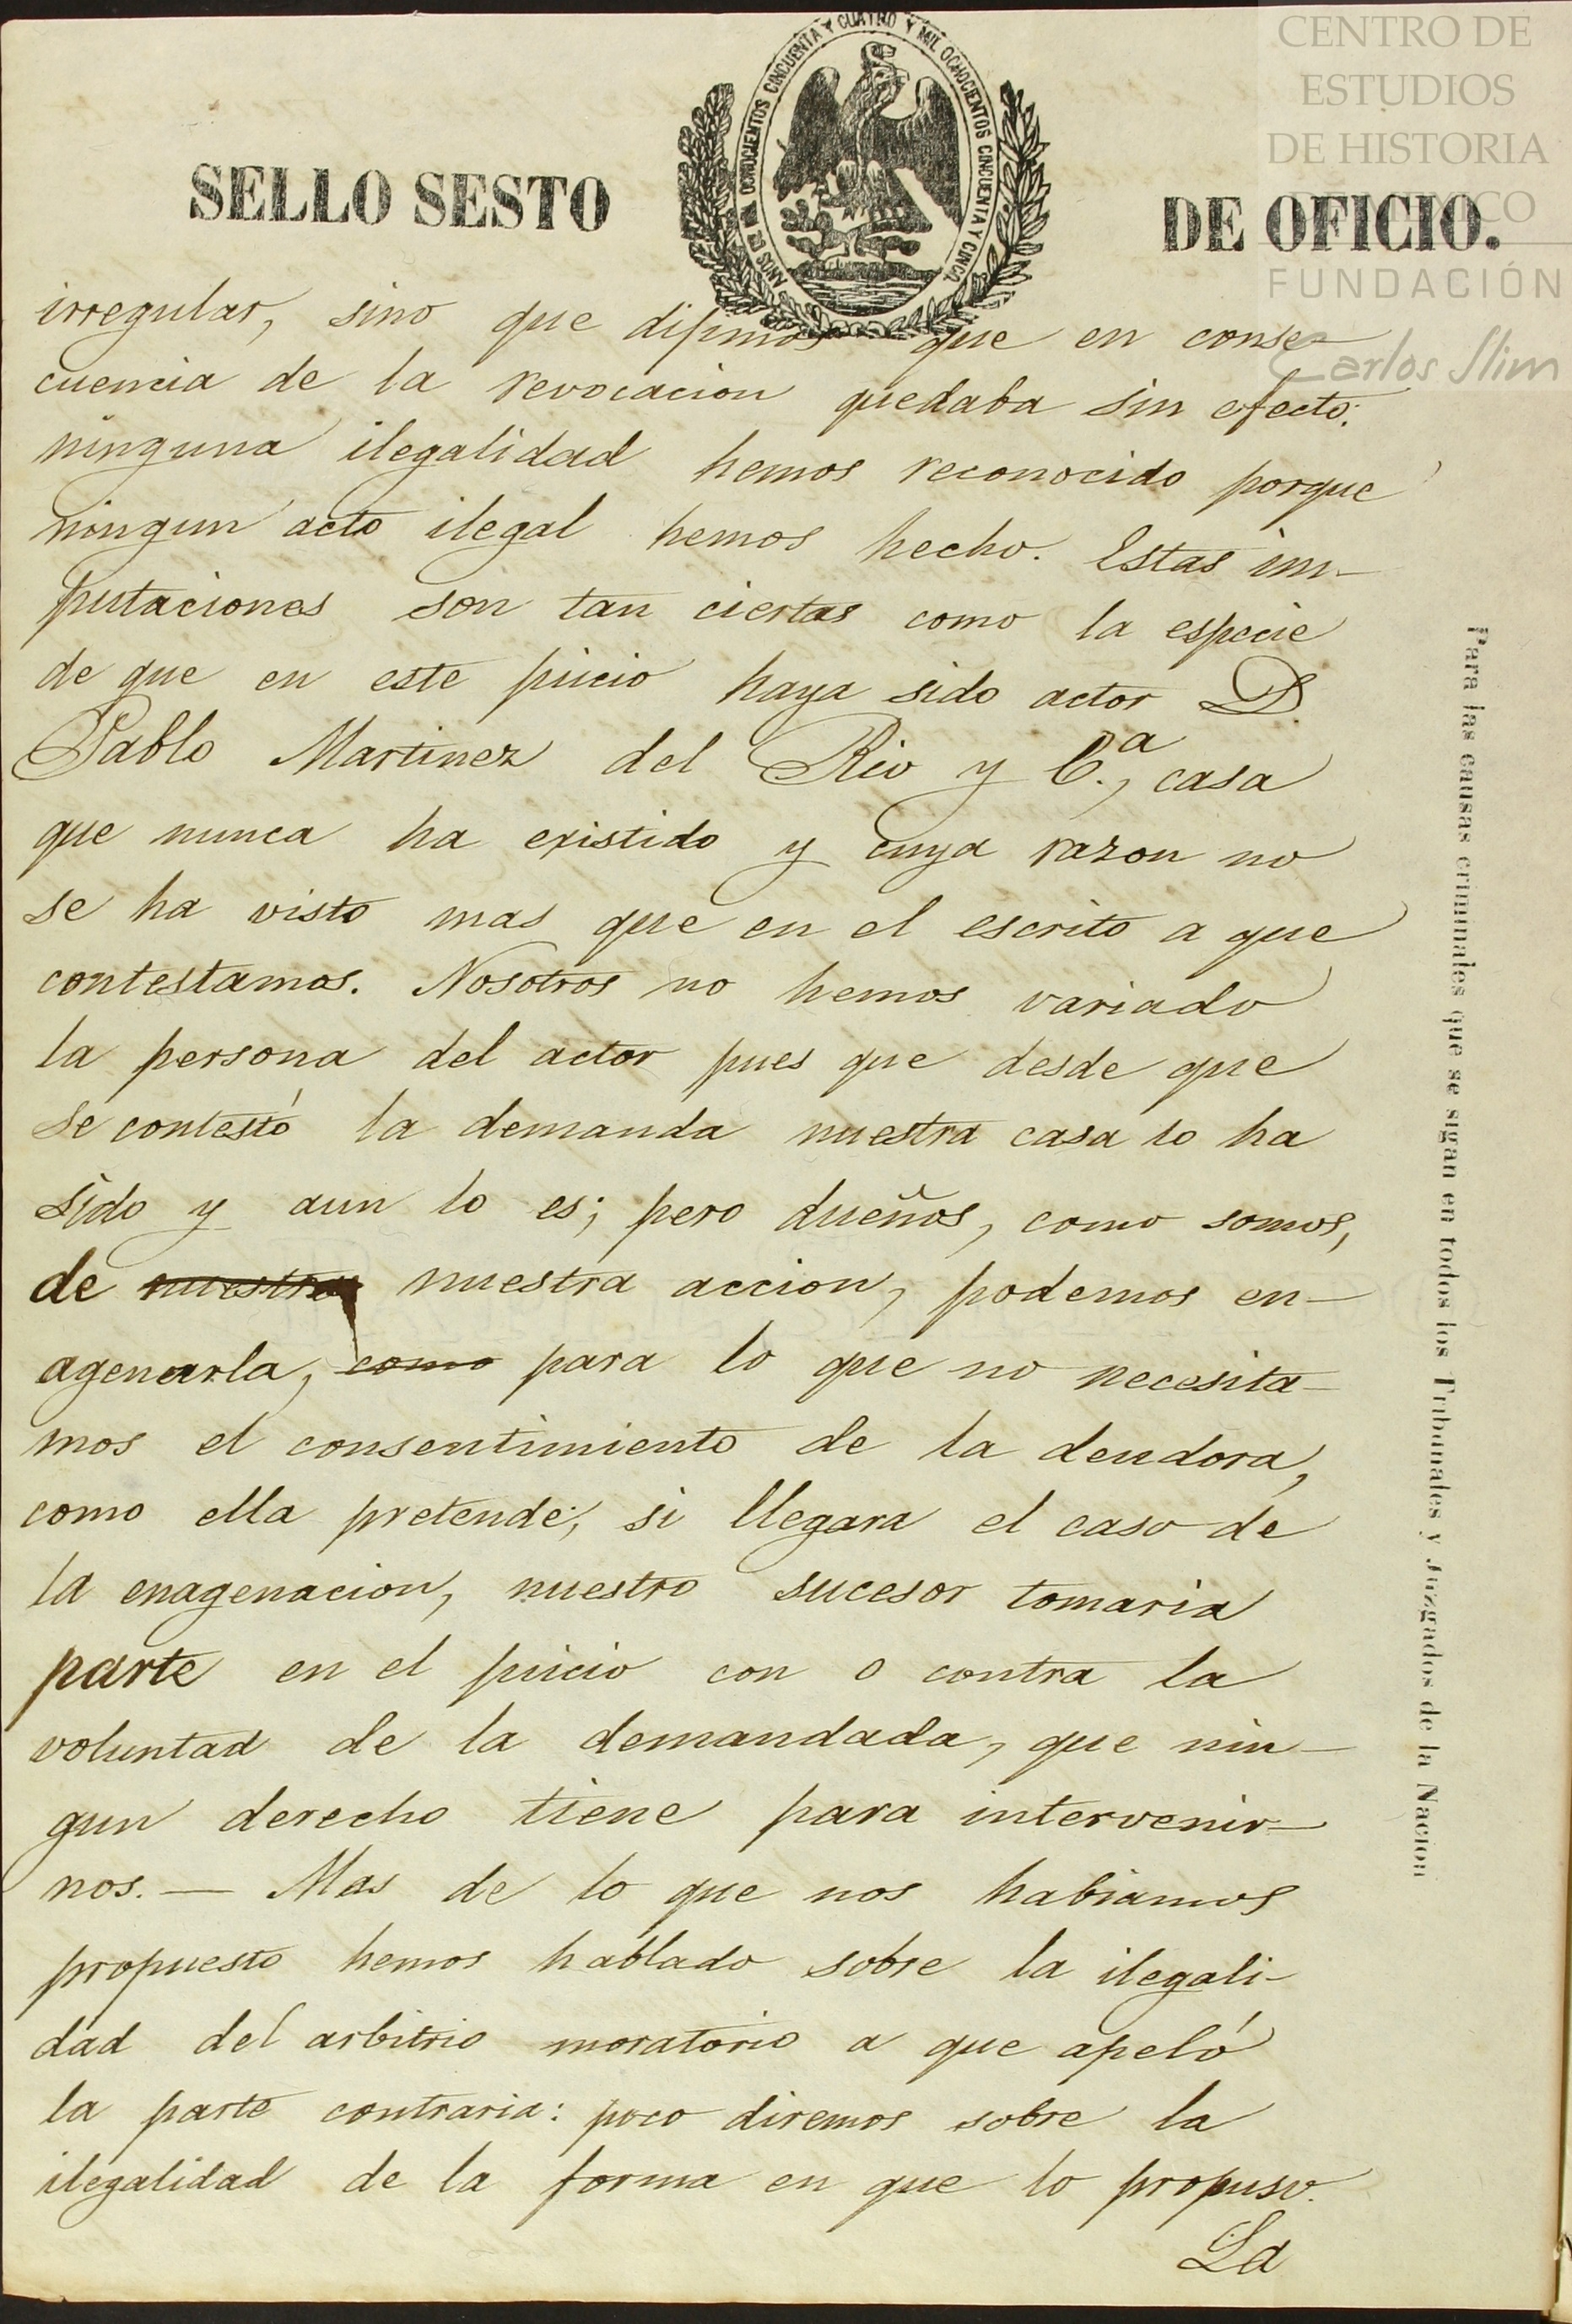 CENTRO DE
ESTUDIOS
DE HISTORIA
DE MÉXICO
FUNDACIÓN
Carlos Slim
SELLO SESTO
AÑOS DE MIL OCHOCIENTOS CINCUENTA Y CUATRO Y MIL OCHOCIENTOS CINCUENTA Y CINCO.
DE OFICIO.
irregular, sino que dijimos que en conse-
cuencia de la revocacion quedaba sin efecto:
ninguna ilegalidad hemos reconocido porque
ningun acto ilegal hemos hecho. Estas im-
putaciones son tan ciertas como la especie
de que en este juicio haya sido actor D.
Pablo Martinez del Rio y C.ª, casa
que nunca ha existido y cuya razon no
se ha visto mas que en el escrito a que
contestamos. Nosotros no hemos variado
la persona del actor pues que desde que
se contestó la demanda nuestra casa lo ha
sido y aun lo es; pero dueños, como somos,
de nuestra nuestra accion, podemos en-
agenarla, como para lo que no necesita-
mos el consentimiento de la deudora,
como ella pretende; si llegara el caso de
la enagenacion, nuestro sucesor tomaria
parte en el juicio con o contra la
voluntad de la demandada, que nin-
gun derecho tiene para intervenir-
nos. — Mas de lo que nos habiamos
propuesto hemos hablado sobre la ilegali-
dad del arbitrio moratorio a que apeló
la parte contraria: poco diremos sobre la
ilegalidad de la forma en que lo propuso.
La
Para las causas criminales que se sigan en todos los Tribunales y Juzgados de la Nacion